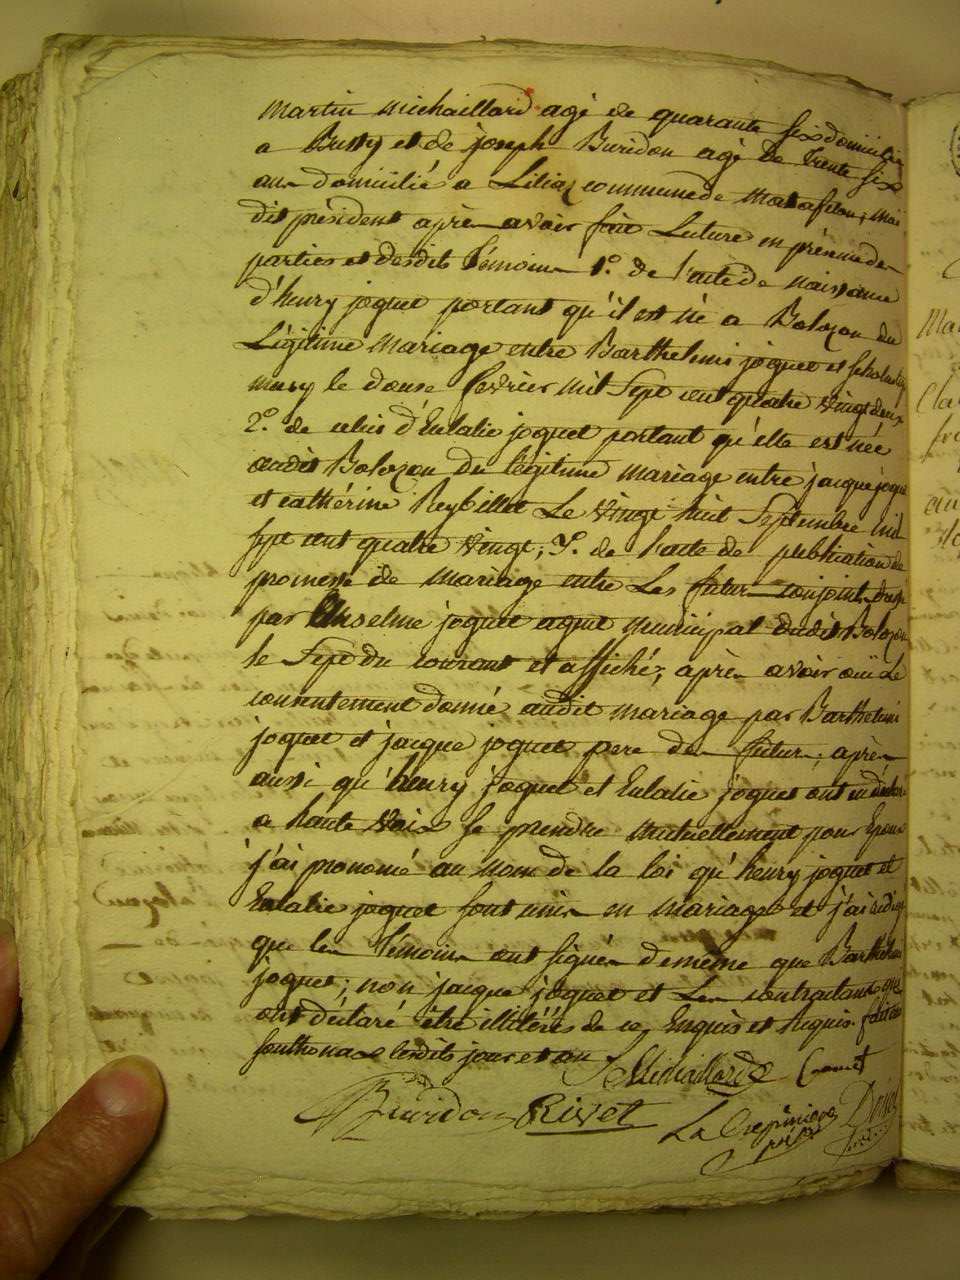 martin michaillard agé de quarante six domicilié
a Brissy et de joseph Buridon agé de trente six
ans domicilié a Liliaz commune de Matafelon, moi
dit président après avoir fait Luture en présence des
parties et desdits témoins 1.° de l'acte de naissance
d'henry joquet portant qu'il est né a Bolozon du
Légitime mariage entre Barthelemi joquet et
mury le douse fevrier mil sept cent quatre vingt deux
2.° de celui d'Eulalie joquet portant qu'elle est née
audit Bolozon du légitime mariage entre jacque joquet
et cathérine Reybillet Le vingt huit Septembre mil
sept cent quatre vingt, 3.° de l'acte de publication de
promesse de mariage entre Les futur conjoint
par Anselme joquet agent municipal dudit Bolozon
le Sept du courant et affiché; après avoir oui Le
consentement donné audit mariage par Barthelemi
joquet et jacque joquet pere des futur, après
aussi qu'henry joquet et Eulalie joquet ont
a haute voix se prendre mutuellement pour Epoux
j'ai prononcé au nom de la loi qu'henry joquet et
Eulalie joquet sont unis en mariage et j'ai rédigé
que les témoins ont signés de même que Barthelemi
joquet; non jacque joquet et Les contractans qui
ont déclaré être illitérés de ce Enquis et Requis. fait a
sonthonax lesdits jour et an
Michaillard
Buridon Rivet
La Crepiniere